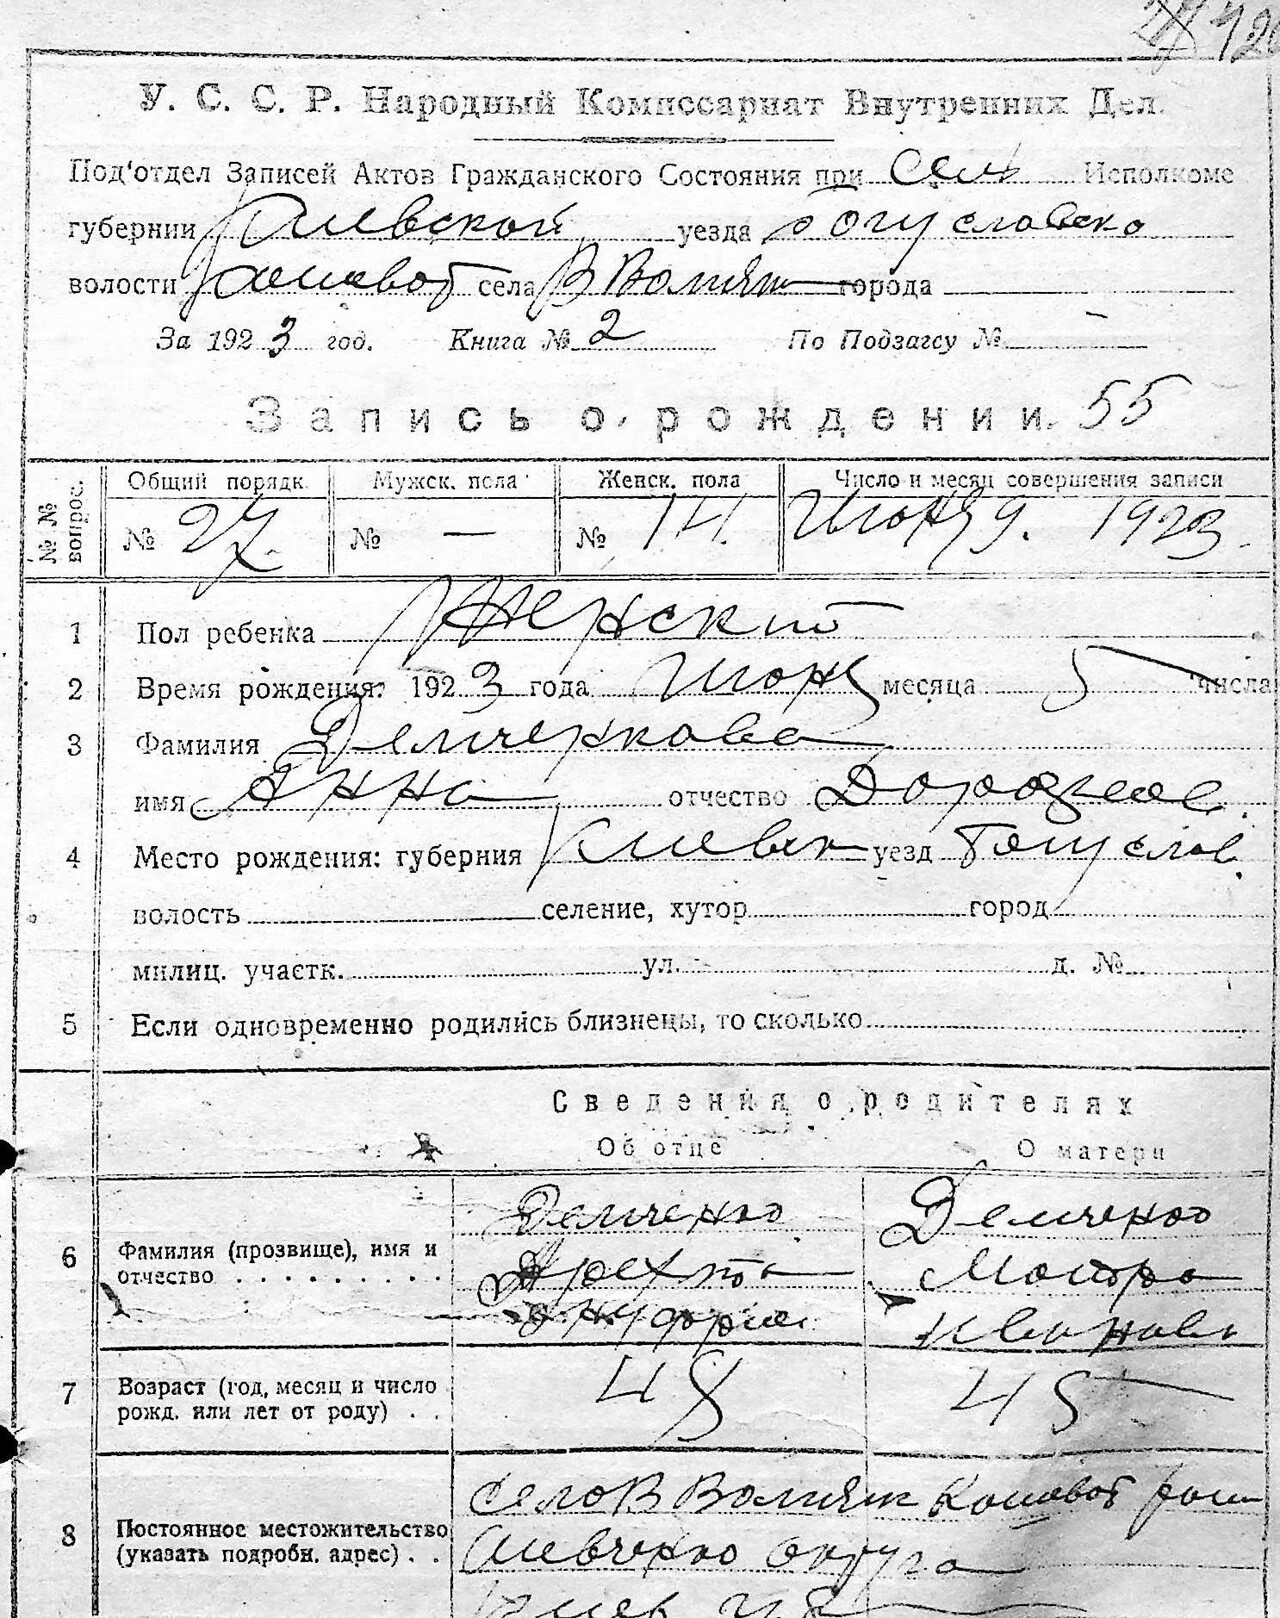 42
У. С. С. Р. Народный Комиссариат Внутренних Дел.
Под'отдел Записей Актов Гражданского Состояния при Сель Исполкоме
губернии Киевской уезда Богуславско
волости села В Волнян города
За 1923 год. Книга № 2 По Подзагсу № —
Запись о рождении. 55
№ № вопрос. Общий порядк. Мужск. пола Женск. пола Число и месяц совершения записи
№ 27. № — № 14. Июня 9. 1923.
1 Пол ребенка Женский
2 Время рождения: 1923 года Июня месяца 5 числа
3 Фамилия Демченкова
имя Анна отчество
4 Место рождения: губерния Киевск уезд Богуслав.
волость селение, хутор город
милиц. участк. ул. д. №
5 Если одновременно родились близнецы, то сколько
Сведения о родителях
Об отце О матери
6 Фамилия (прозвище), имя и отчество Демченко Демченко
Мотра
Онуфрие Иванов
7 Возраст (год, месяц и число рожд. или лет от роду) 48 45
8 Постоянное местожительство (указать подробн. адрес) село В Волнян Коши́ват рай
Шевченко округа
Киев губ